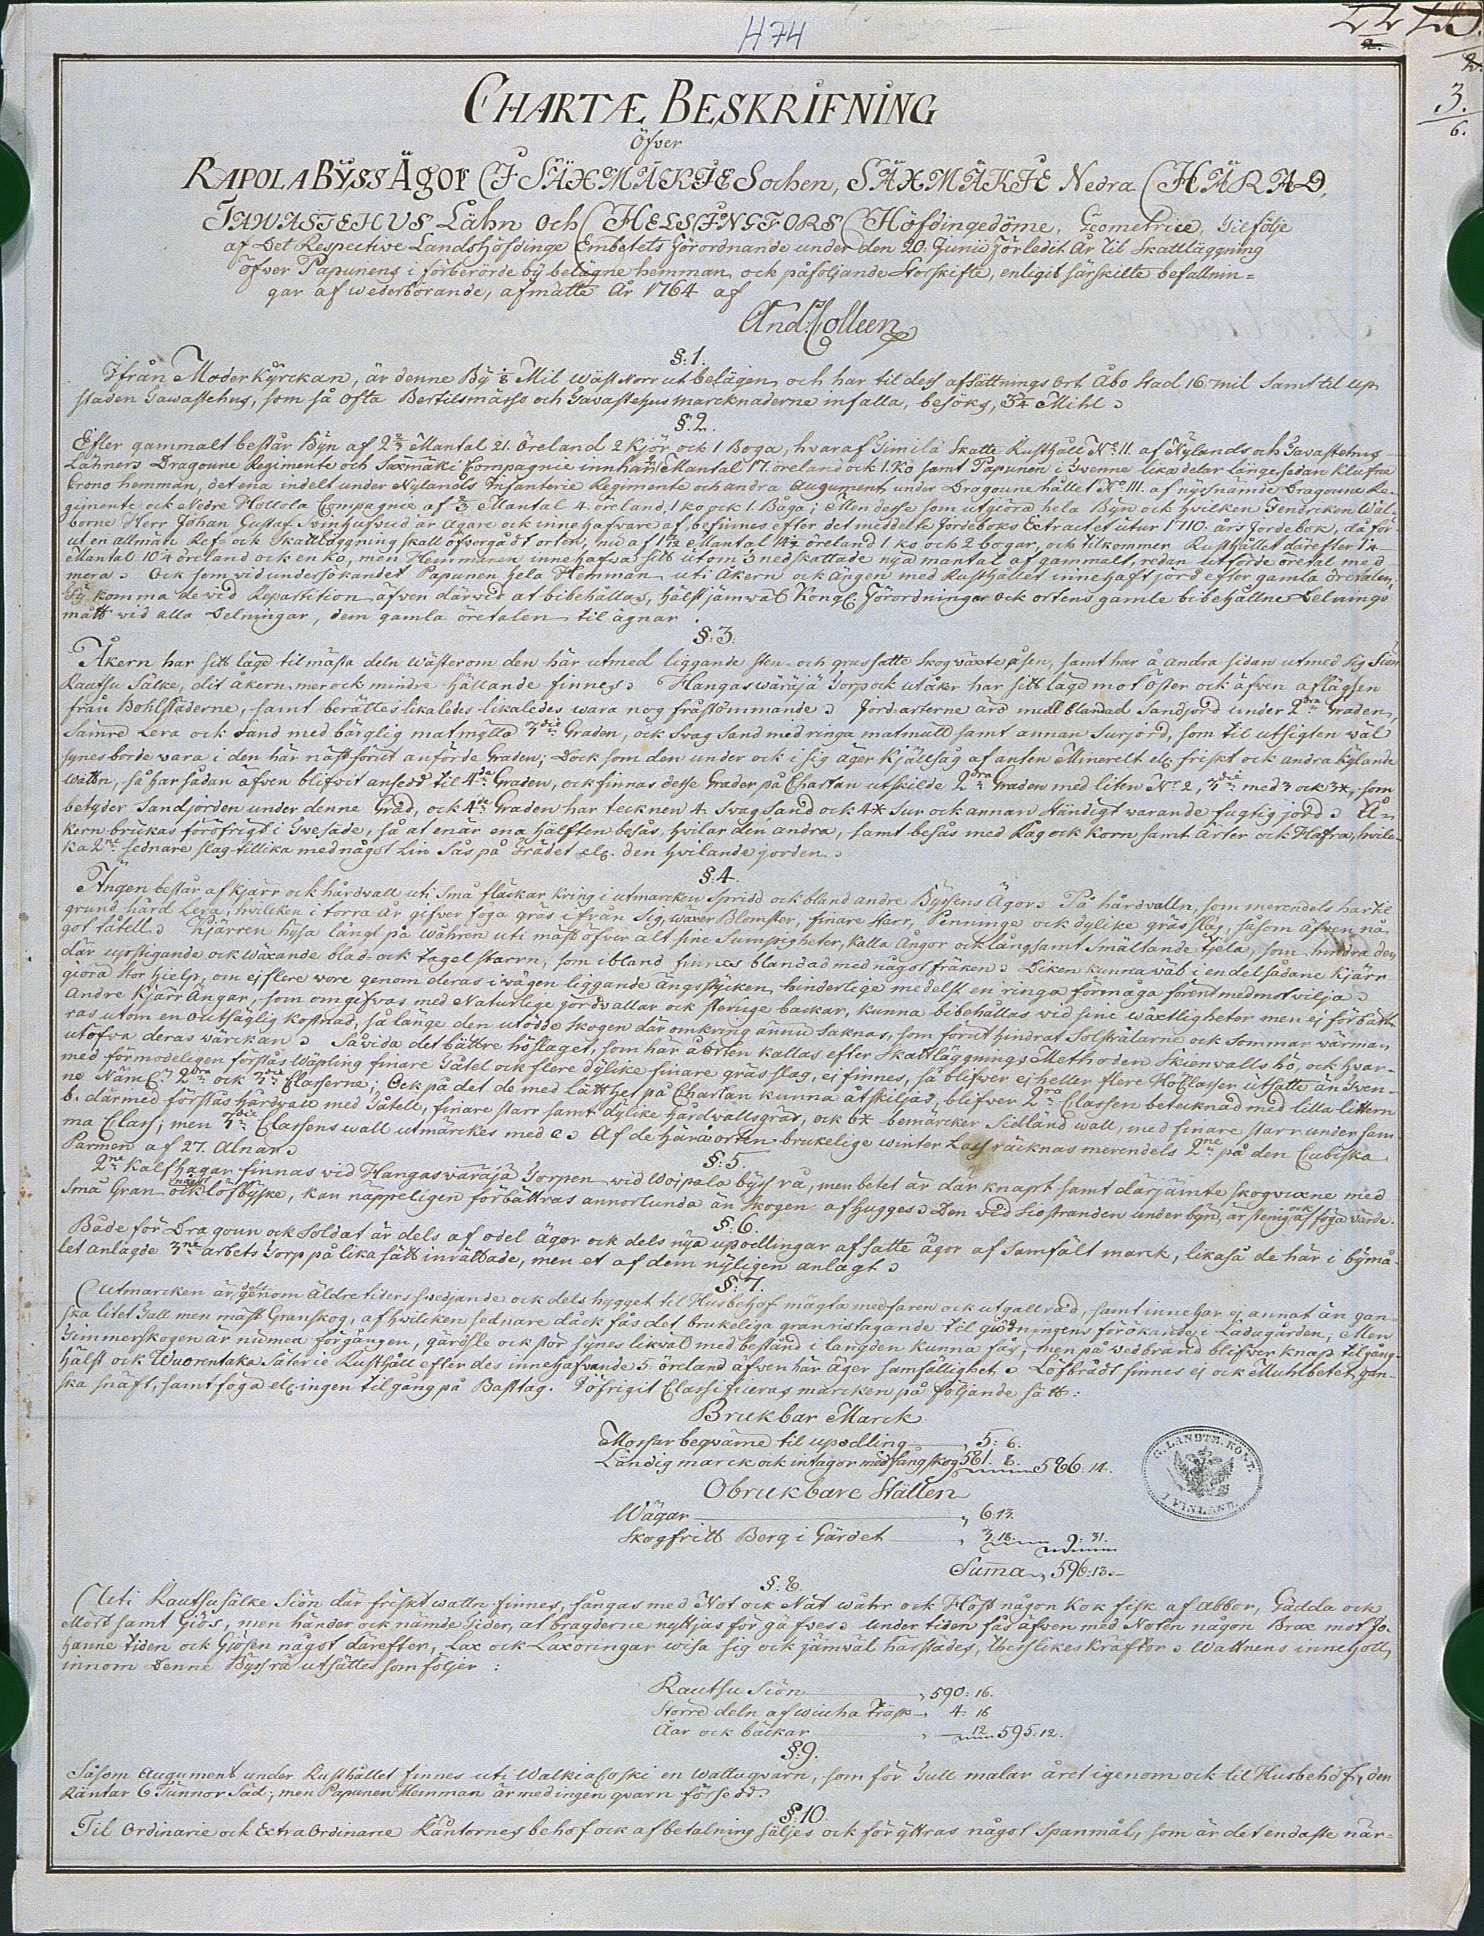 474
3.
6.
CHARTÆ BESKRIFNING
öfver
RAPOLA BŸSS Ägor I SÄXMÄKIE Sochen, SÄXMÄKIE Nedra HÄRAD,
TAWASTEHUS Lähn och HELSINGFORS Höfdingedöme, Geometrice, Til följe
af Det Respective Landshöfdinge Embetets Förordnande under den 20. Junii förledit År til Skattläggning
öfver Papunens i förberörde bÿ belägne hemman, och påföljande Storskifte, enligit särskilte befallnin=
gar af wederbörande, afmätte År 1764 af
And: Colleen
§: 1.
Ifrån Moder Kÿrckan, är denne Bÿ Mil Wäst Norr ut belägen, och har til dess afsättnings Ort Åbo Stad 16 mil samt til Up
staden Tawastehus, som så ofta Bertilsmässo och Tavastehus marcknaderne infalla, besöks, 3¼ Mihl.
§: 2.
Efter gammalt består Bÿn af 2⅔ Mantal 21. Öreland 2 Kjör och 1 Boga, hvaraf Gimilä Skatte Rusthåll No. 11. af Nÿlands och Tavastehus
Lähners Dragoune Regimente och Saxmäki Compagnie innhar Mantal 17. öreland ock 1. Ko samt Papunen i Tvenne lika delar längesedan klufne
Crono hemman, det ena indelt under Nylands Infanterie Regimente och andra Augument under Dragounehållet No. III. af nÿssnämde Dragoune Re-
gimente ock Nedre Hollola Compagnie af ⅔ Mantal 4. öreland, 1 ko ock 1. Båga; Men desse som utgiöra hela Bÿn ock hvilken Fendricken Wäl-
borne Herr Johan Gustaf Svinhufvud är ägare ock innehafware af, befinnes efter det meddelte Jordeboks Extractet utur 1710. års Jordebok, då för-
ut en allmän Refs ock Skattläggning skall öfvergådt orten, nu af Mantal öreland 1 ko och 2 bogar, och tilkommer Rusthållet därefter
Mantal öreland ock en ko, men Hemmanen innehafva sitt utom 3 nedskattade nÿa mantal af gammalt, redan utförde öretal med
mera. Ock som vid undersökandet Papunen hela Hemman uti Åkern ock ängen med Rusthållet innehaft jord efter gamla öretalen,
Ty komma de vid Repartition äfven därvid at bibehållas, hälst jämwäl Kongl. Förordningar ock ortens gamle bibehållne Delnings
mått vid alla Delningar, dem gamla öretalen til ägnar
§: 3.
Åkern har sitt läge til mästa deln wästerom den här utmed liggande sten- och grussatte skogväxte åsen, samt har å andra sidan utmed sig Siön
Rautsu Sälke, dit åkern mer ock mindre hällande finnes. Hangaswäräjä Torp ock utåker har sitt läge mot öster ock äfven aflägsen
från Bohlstäderne, samt berättes likaledes likaledes wara nog frostömmande. Jordarterne äro mull blandad Sandjord under 2dra Graden,
Sämre Lera ock Sand med bärglig matmylla 3die Graden, ock Svag Sand med ringa matmull samt annan Surjord, som til utsigten wäl
synes borde wara i den här näst förut anförde Graden; Dock som den under ock i sig äger Kjällsåg af anten Minerelt elr. friskt ock andra kylande
wattn, så har sådan äfven blifvit ansedd til 4de Graden, ock finnas desse Grader på Chartan utskilde 2dra Graden med liten No. 2, 3die med 3 ock 3*, som
betyder Sandjorden under denne Grad, ock 4de Graden har tecknen 4. Svag Sand ock 4* Sur ock annan ständigt warande fugtig jord. Å=
kern brukas föröfrigt i Tvesäde, så at enär ena hälften besås, hvilar den andra, samt besås med Råg ock Korn samt ärter ock Haffra, hvil-
ka 2ne sednare slag tillika med något Lin sås på Trädet elr. den hvilande jorden.
§: 4.
Ängen består af kjärr ock hårdwall uti små fläckar kring i utmarcken spridd ock bland andre Bÿssens Ägor. På hårdvalln, som merendels har til
grund hård Lera, hvilcken i torra år gifver föga gräs ifrån sig, wäxer Blomster, finare starr, Penninge ock dylike gräs slag, såsom äfven nå
got tåtell. Kjärren hysa långt på wåhren uti mäst öfver alt sine Sumpigheter, kalla ångor ock långsamt Smältande tjela, som hindra den
där upstigande ock wäxande blad- ock tagel starrn, som ibland finnes blandad med något fräken. Diken kunna wäl i en del sådane kjärr
giöra stor hielp, om ej flere wore genom deras i vägen liggande ängsstycken hinderlige medelst en ringa förmåga förend med motvilja.
Andre Kjärr Ängar, som omgifvas med Naturlige jordvallar ock steniga backar, kunna bibehållas vid sine wäxtligheter men ej förbätt-
ras utom en outsäglig kostnad, så länge den utödde Skogen där omkring ännu saknas, som förut hindrat Solstrålarne ock Sommar wärman
utöfva deras wärckan. Såvida det bättre höslaget, som här å orten kallas efter Skattläggnings Methoden Skienvalls hö, ock hvar-
med förmodeligen förstås Wäpling finare Tåtel ock flere dylike finare gräs slag, ej finnes, så blifver ej heller flere Hö Classer utsatte än Tven-
ne Näml: 2dra ock 3die Classerne; Ock på det de med lätthet på Chartan kunna åtskiljas, blifver 2dra Classen betecknad med lilla littern
b. därmed förstås hårdvall med Tåtell, finare starr samt dylike hårdvallsgräs, ock b* bemärcker Sidländ wall, med finare starr under sam-
ma Class; men 3die Classens wall utmärckes med c. Af de här å orten brukelige winter Lass räcknas merendels 2ne på den Cubiska
Parmen af 27. Alnar.
§: 5.
2ne Kalfhagar finnas vid Hangaswäräjä Torpen vid Woipala bÿss rå, men betet är där knapt samt därjämte skogvuxne med
små Gran ock något löfbyske, kan näppeligen förbättras annorlunda än Skogen afhugges. Den vid Siöstranden under bÿn, är stenig ock af föga värde.
§: 6.
Både för Dragoun ock Soldat är dels af odel ägor ock dels nÿa upodlingar afsatte ägor af samfält marck, likaså de här i bÿmå-
let anlagde 3ne arbets Torp på lika sätt inrättade, men et af dem nÿligen anlagt.
§: 7.
Utmarcken är dels genom äldre tiders svedjande ock dels hygget til Husbehof mägta medfaren ock utgallrad, samt innehar ej annat än gan-
ska litet Tall men mäst Granskog, af hvilcken sednare däck fås det brukeliga granristagande til giödningens förökande i Ladugården; Men
Timmerskogen är numea förgången, gärdsle ock stör synes likväl med bestånd i längden kunna fås, men på wedbrand blifver knap tilgång-
hälst ock Wuorentaka Säterie Rusthåll efter des innehafvande 5 öreland äfven här äger samfällighet. Löfbrådt finnes ej ock Muhlbetet gan-
ska snäft, samt föga elr. ingen tilgång på Basttag. I öfrigit Classificeras marcken på följande sätt:
Brukbar Marck
Mossar beqväme til upodling 5: 6.
Ländig marck ock intagor med fång skog 581. 8. 586. 14.
Obrukbare Ställen
Wägar 6. 13.
Skogfritt Berg i Gärdet 3. 18. 9: 31.
Summa 596. 13.
G. LANDTM. KONT.
I FINLAND.
§: 8.
Uti Rautsusälke Siön där friskt wattn finnes, fångas med Not ock Nät wåhr ock Höst någon kok fisk af abbor, Gädda ock
Mört samt Giös, men händer ock nämde tider, at bragderne nyttjas för gäfves. Under tiden fås äfven med Noten någon Brax mot Jo-
hanne tiden ock Giösen något därefter, Lax ock Laxöringar wisa sig ock jämväl härstädes, therslikes kräftor. Wattnens innehåll
innom Denne Bÿss rå utsättes som följer:
Rautsu Siön 590: 16.
Större deln af wiuha Träsk 4: 16
Åar ock bäckar 12 595: 12.
§: 9.
Såsom Augument under Rusthållet finnes uti Walkiakoski en wattuqvarn, som för Tull malar året igenom ock til Husbehof, den
Räntar 6 Tunnor Säd; men Papunen Hemman är med ingen qvarn försedd.
§: 10.
Til Ordinarie ock Extra Ordinarie Räntornes behof ock afbetalning säljes ock föryttras något Spanmål, som är det endaste när-